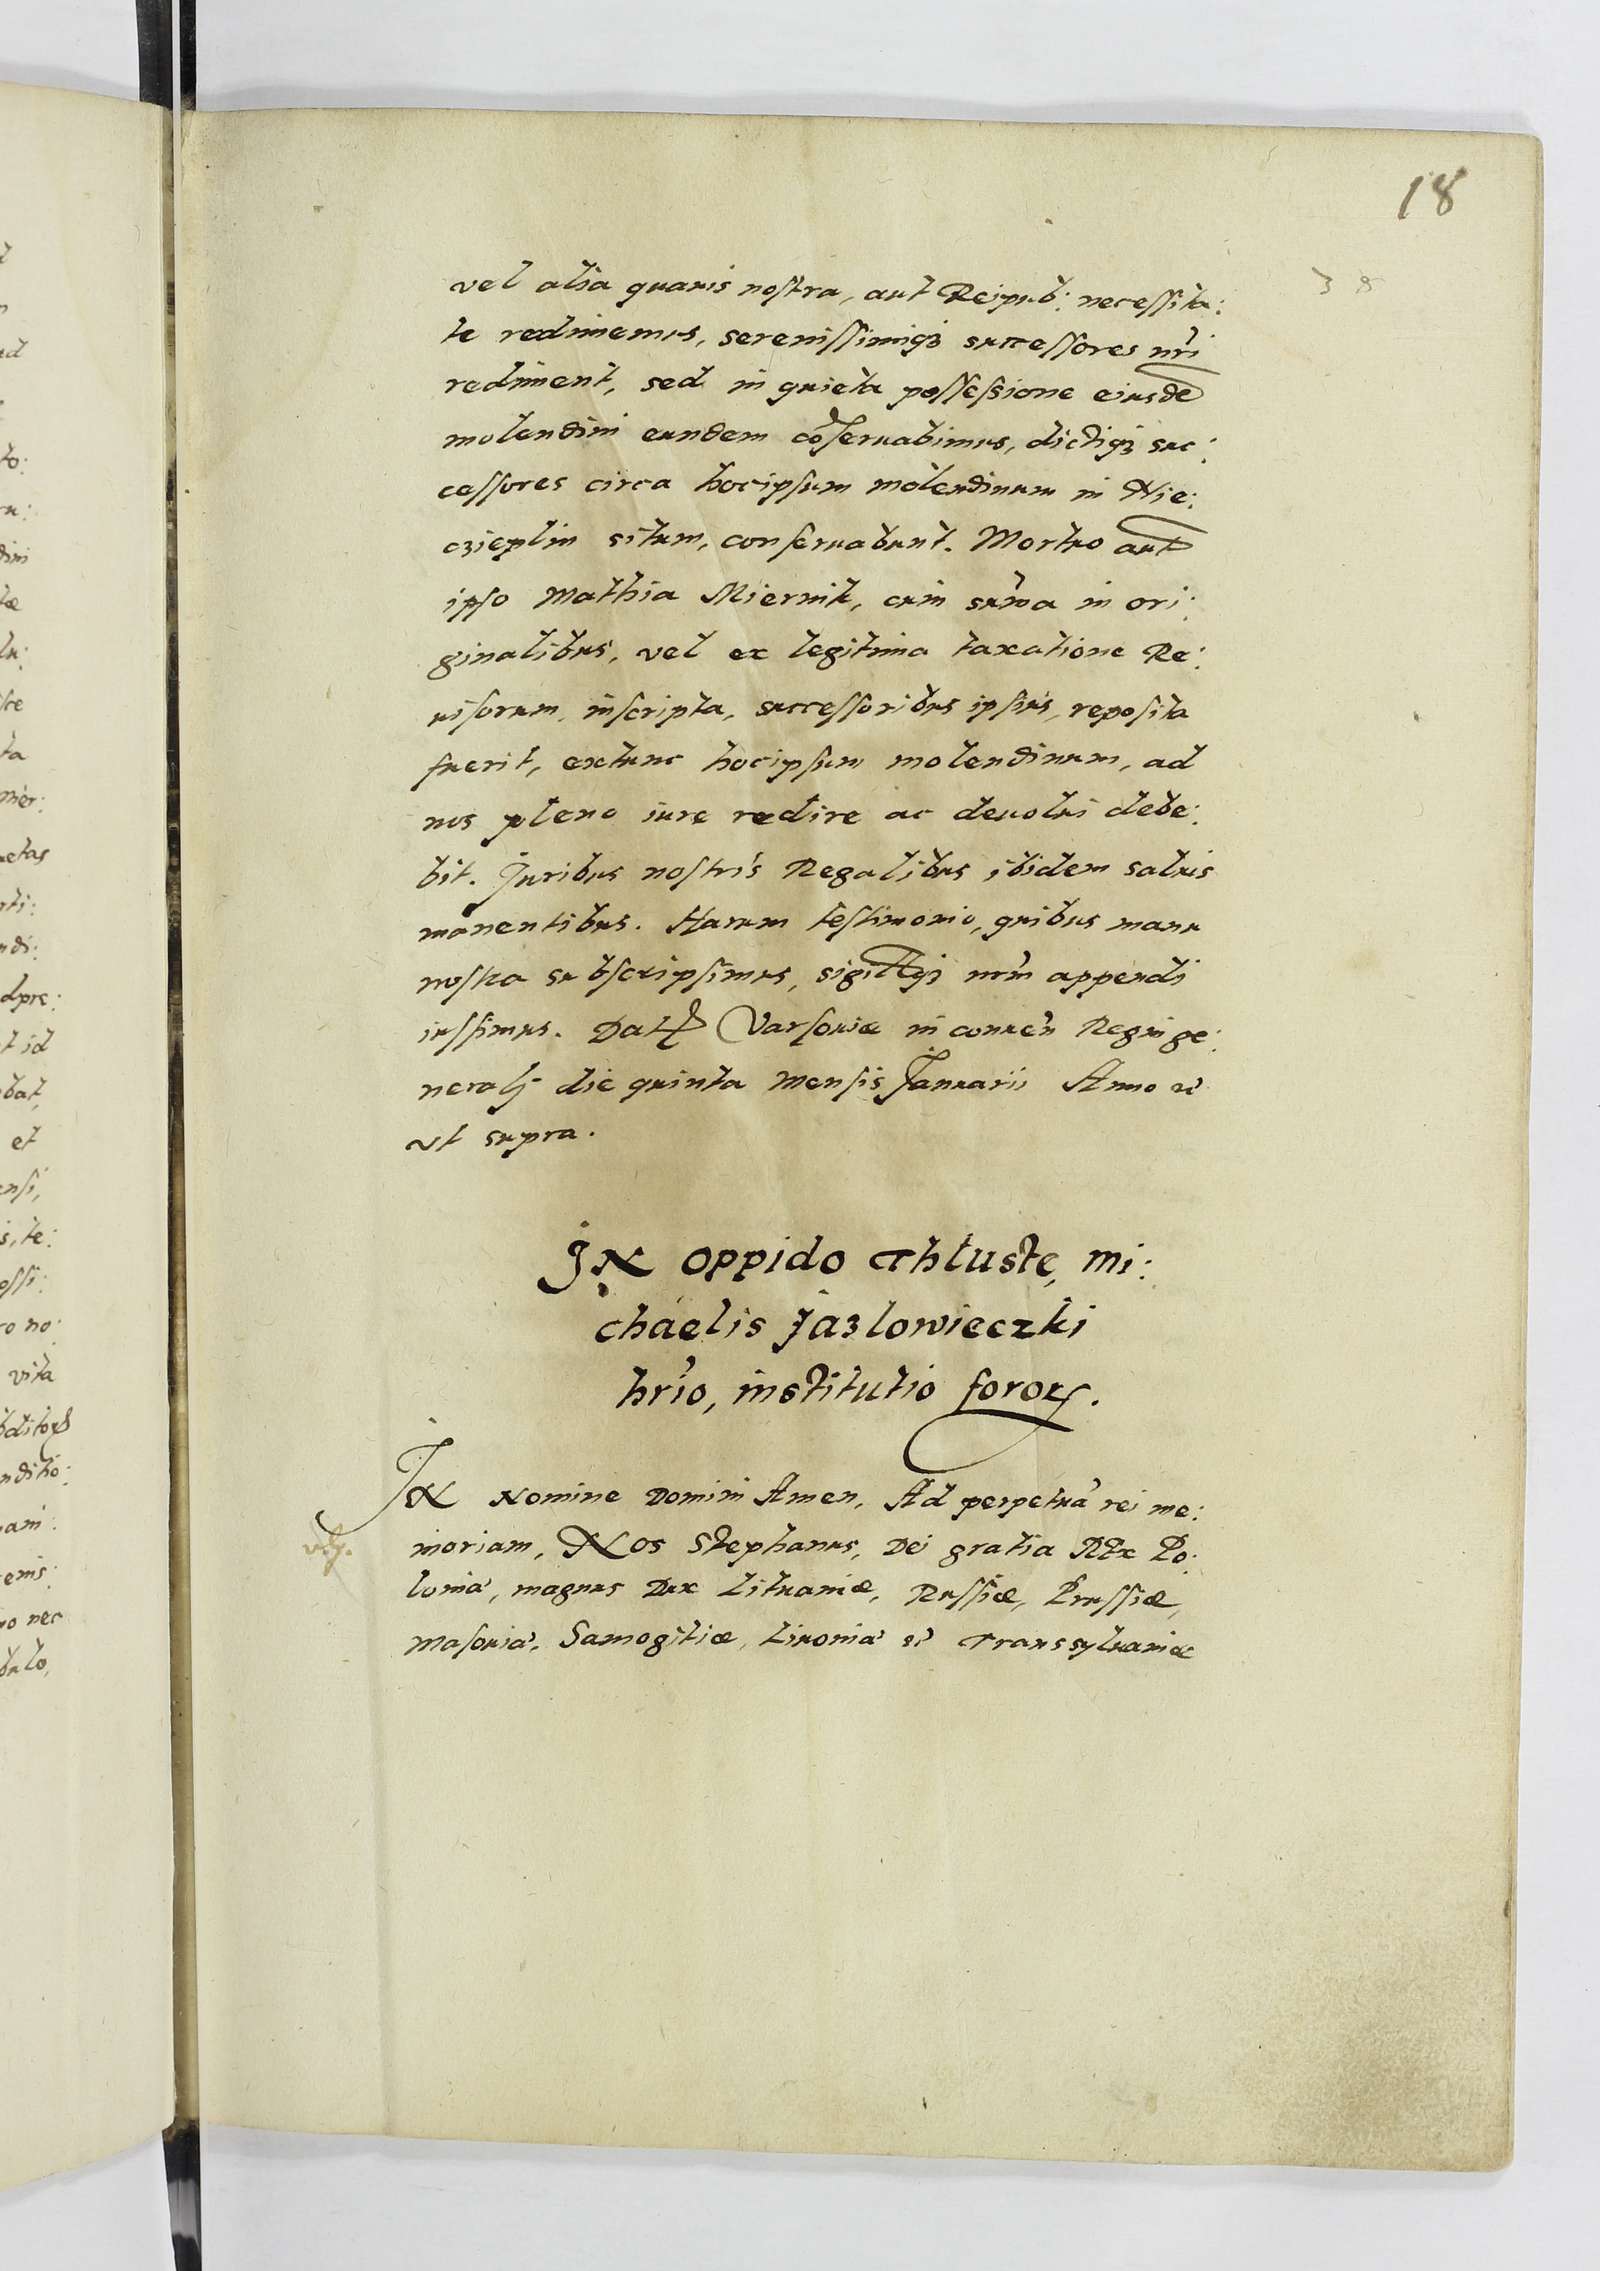 18
vel alia quauis nostra, aut Reipub: necessita:
te redimemus, serenissimiq3 successores nri
rediment, sed in quieta possessione eiusde
molendini eundem coseruabimus, dictiq3 suc:
cessores circa hocipsum molendinum in Nie:
czieplin situm, conseruabunt. Mortuo aut
ipso Mathia Miernik, cum suma in ori:
ginalibus, vel ex legitima taxatione Re:
uisorum, inscripta, successoribus ipsius, reposita
fuerit, extunc hocipsum molendinum, ad
nos pleno iure redire ac deuolui debe:
bit. Juribus nostris Regalibus ibidem saluis
manentibus. Harum testimonio, quibus manu
nostra subscripsimus, sigillq3 nrm appendi
iussimus. Dat Varsouiæ in conuen Regni ge:
nerali die quinta mensis Januarii Anno
vt supra.
JN oppido Thluste, mi:
chaelis Jazlowieczki
hrio, institutio foror.
JN Nomine Domini Amen, Ad perpetua rei me:
moriam, Nos Stephanus, Dei gratia Rex Po:
lonia, magnus Dux Lituaniæ, Russiæ, Prussiæ,
Masouia, Samogitiæ, Liuonia Transsyluaniæ